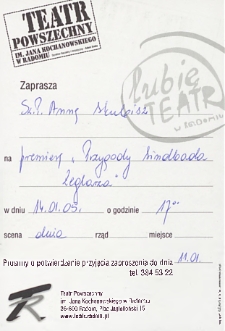 TEATR
POWSZECHNY
IM. JANA KOCHANOWSKIEGO
W RADOMIU
lubię
TEATR
W RADOMIU
Zaprasza
Sz.P. Annę
na premierę „Przygody Sindbada
żeglarza"
w dniu 14.01.05. o godzinie 17⁰⁰
scena duża rząd miejsce
Prosimy o potwierdzenie przyjęcia zaproszenia do dnia 11.01
tel. 384 53 22
Teatr Powszechny
im. Jana Kochanowskiego w Radomiu
26-600 Radom, Plac Jagielloński 15